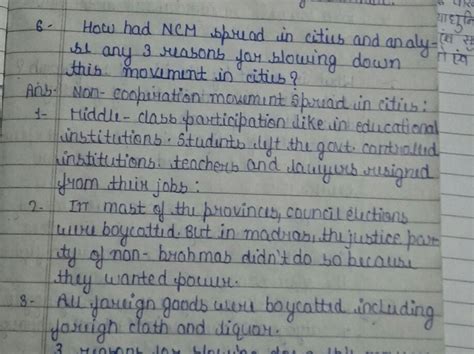 6- How had NCM spread in cities and analy-
se any 3 reasons for slowing down
this movement in cities?
Ans- Non-cooperation movement spread in cities:
1- Middle-class participation like in educational
institutions. Students left the govt. controlled
institutions. teachers and lawyers resigned
from their jobs:
2- In mast of the provinces, council elections
were boycatted. But in madras, the justice par-
ty of non-brohmas didn't do so because
they wanted power.
3- All foreign goods were boycatted including
foreign cloth and liquor.
3 reasons for slowing